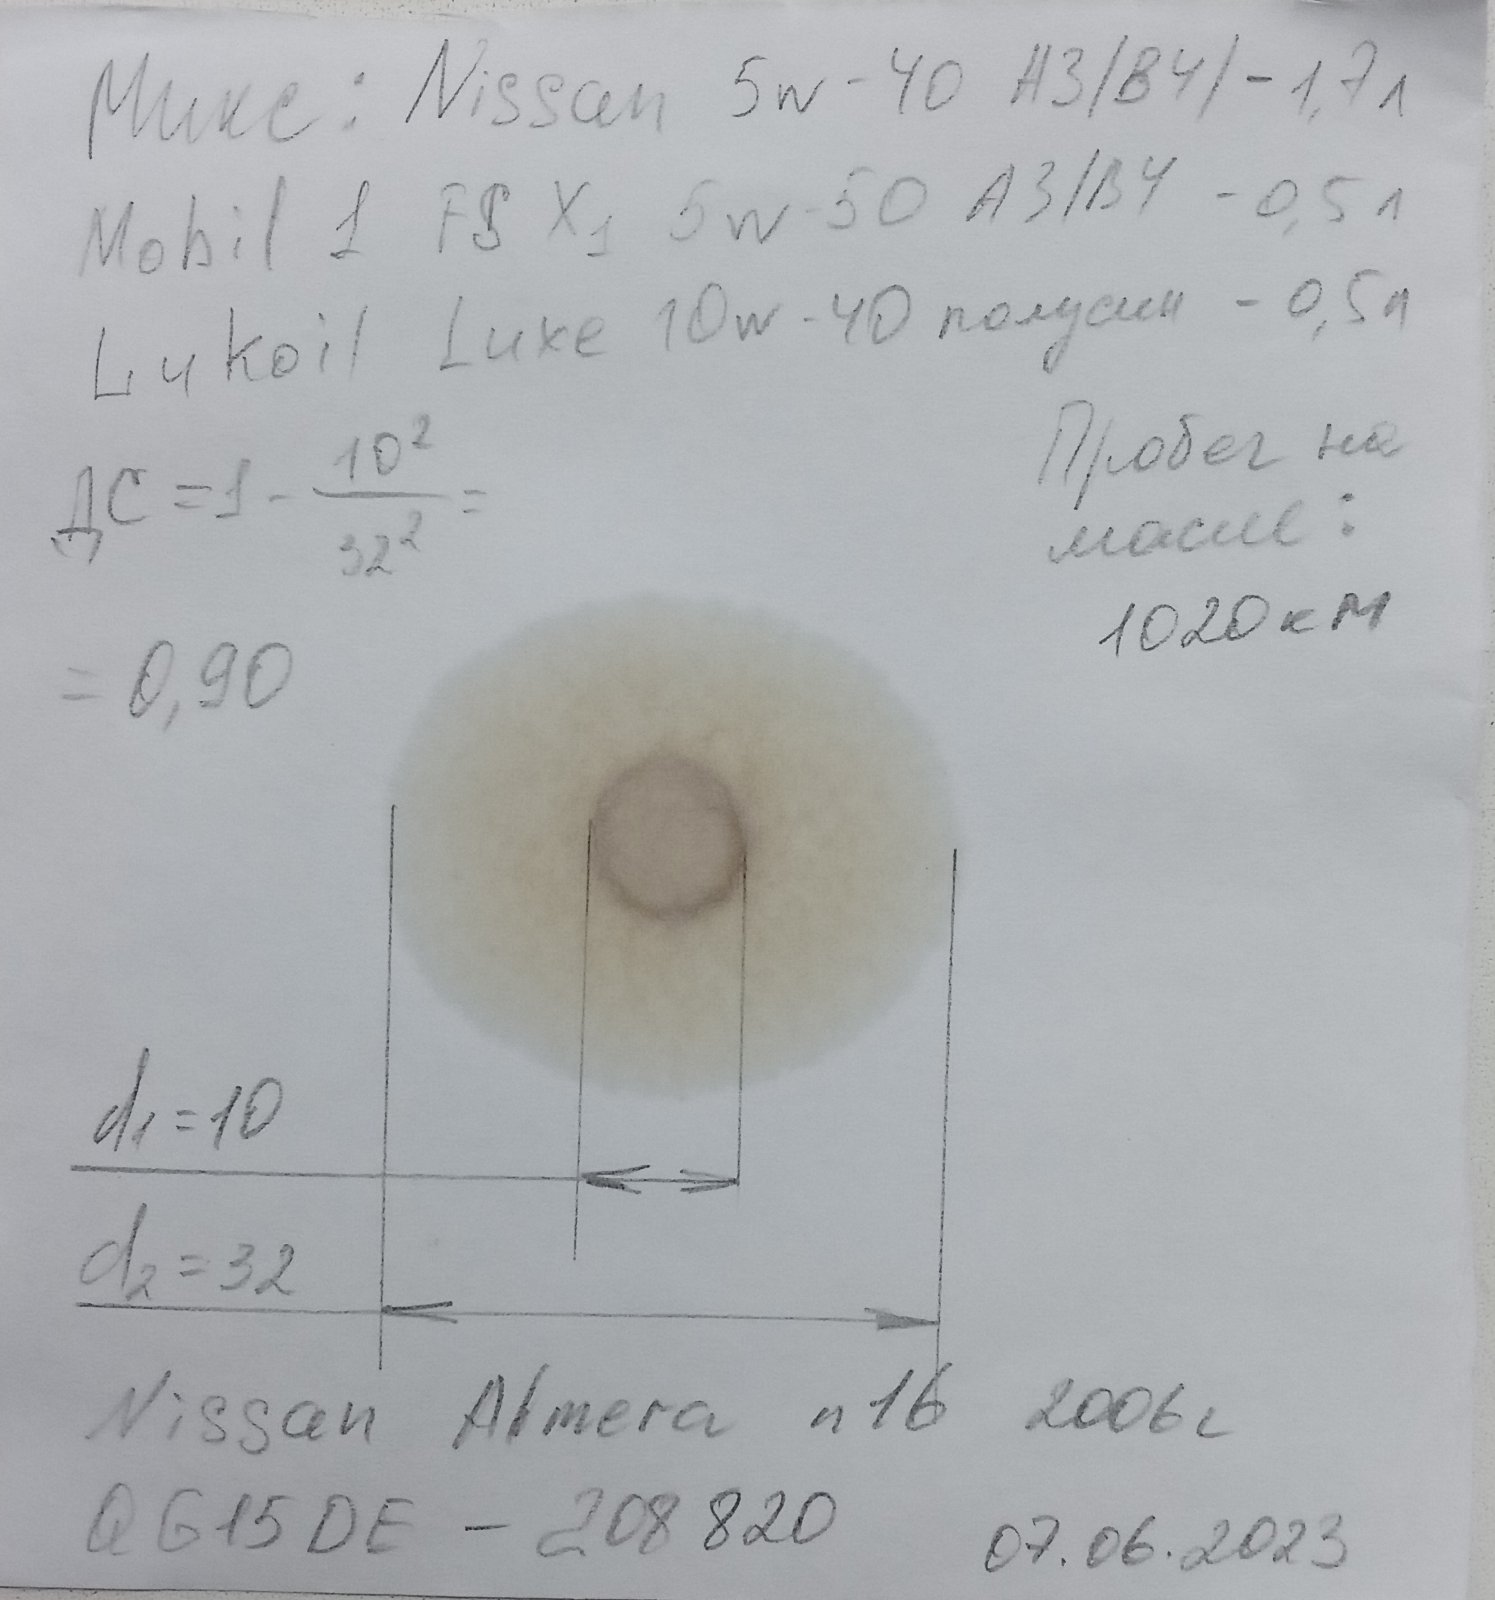 Микс: Nissan 5w-40 A3/B4/-1,7л
Mobil 1 FS X1 5w-50 A3/B4 - 0,5л
Lukoil Luxe 10w-40 полусин - 0,5л
ДС = 1 - 10²/32² =
= 0,90
Пробег на
масле:
1020км
d1=10
d2=32
Nissan Almera n16 2006г
QG15DE - 208 820
07.06.2023